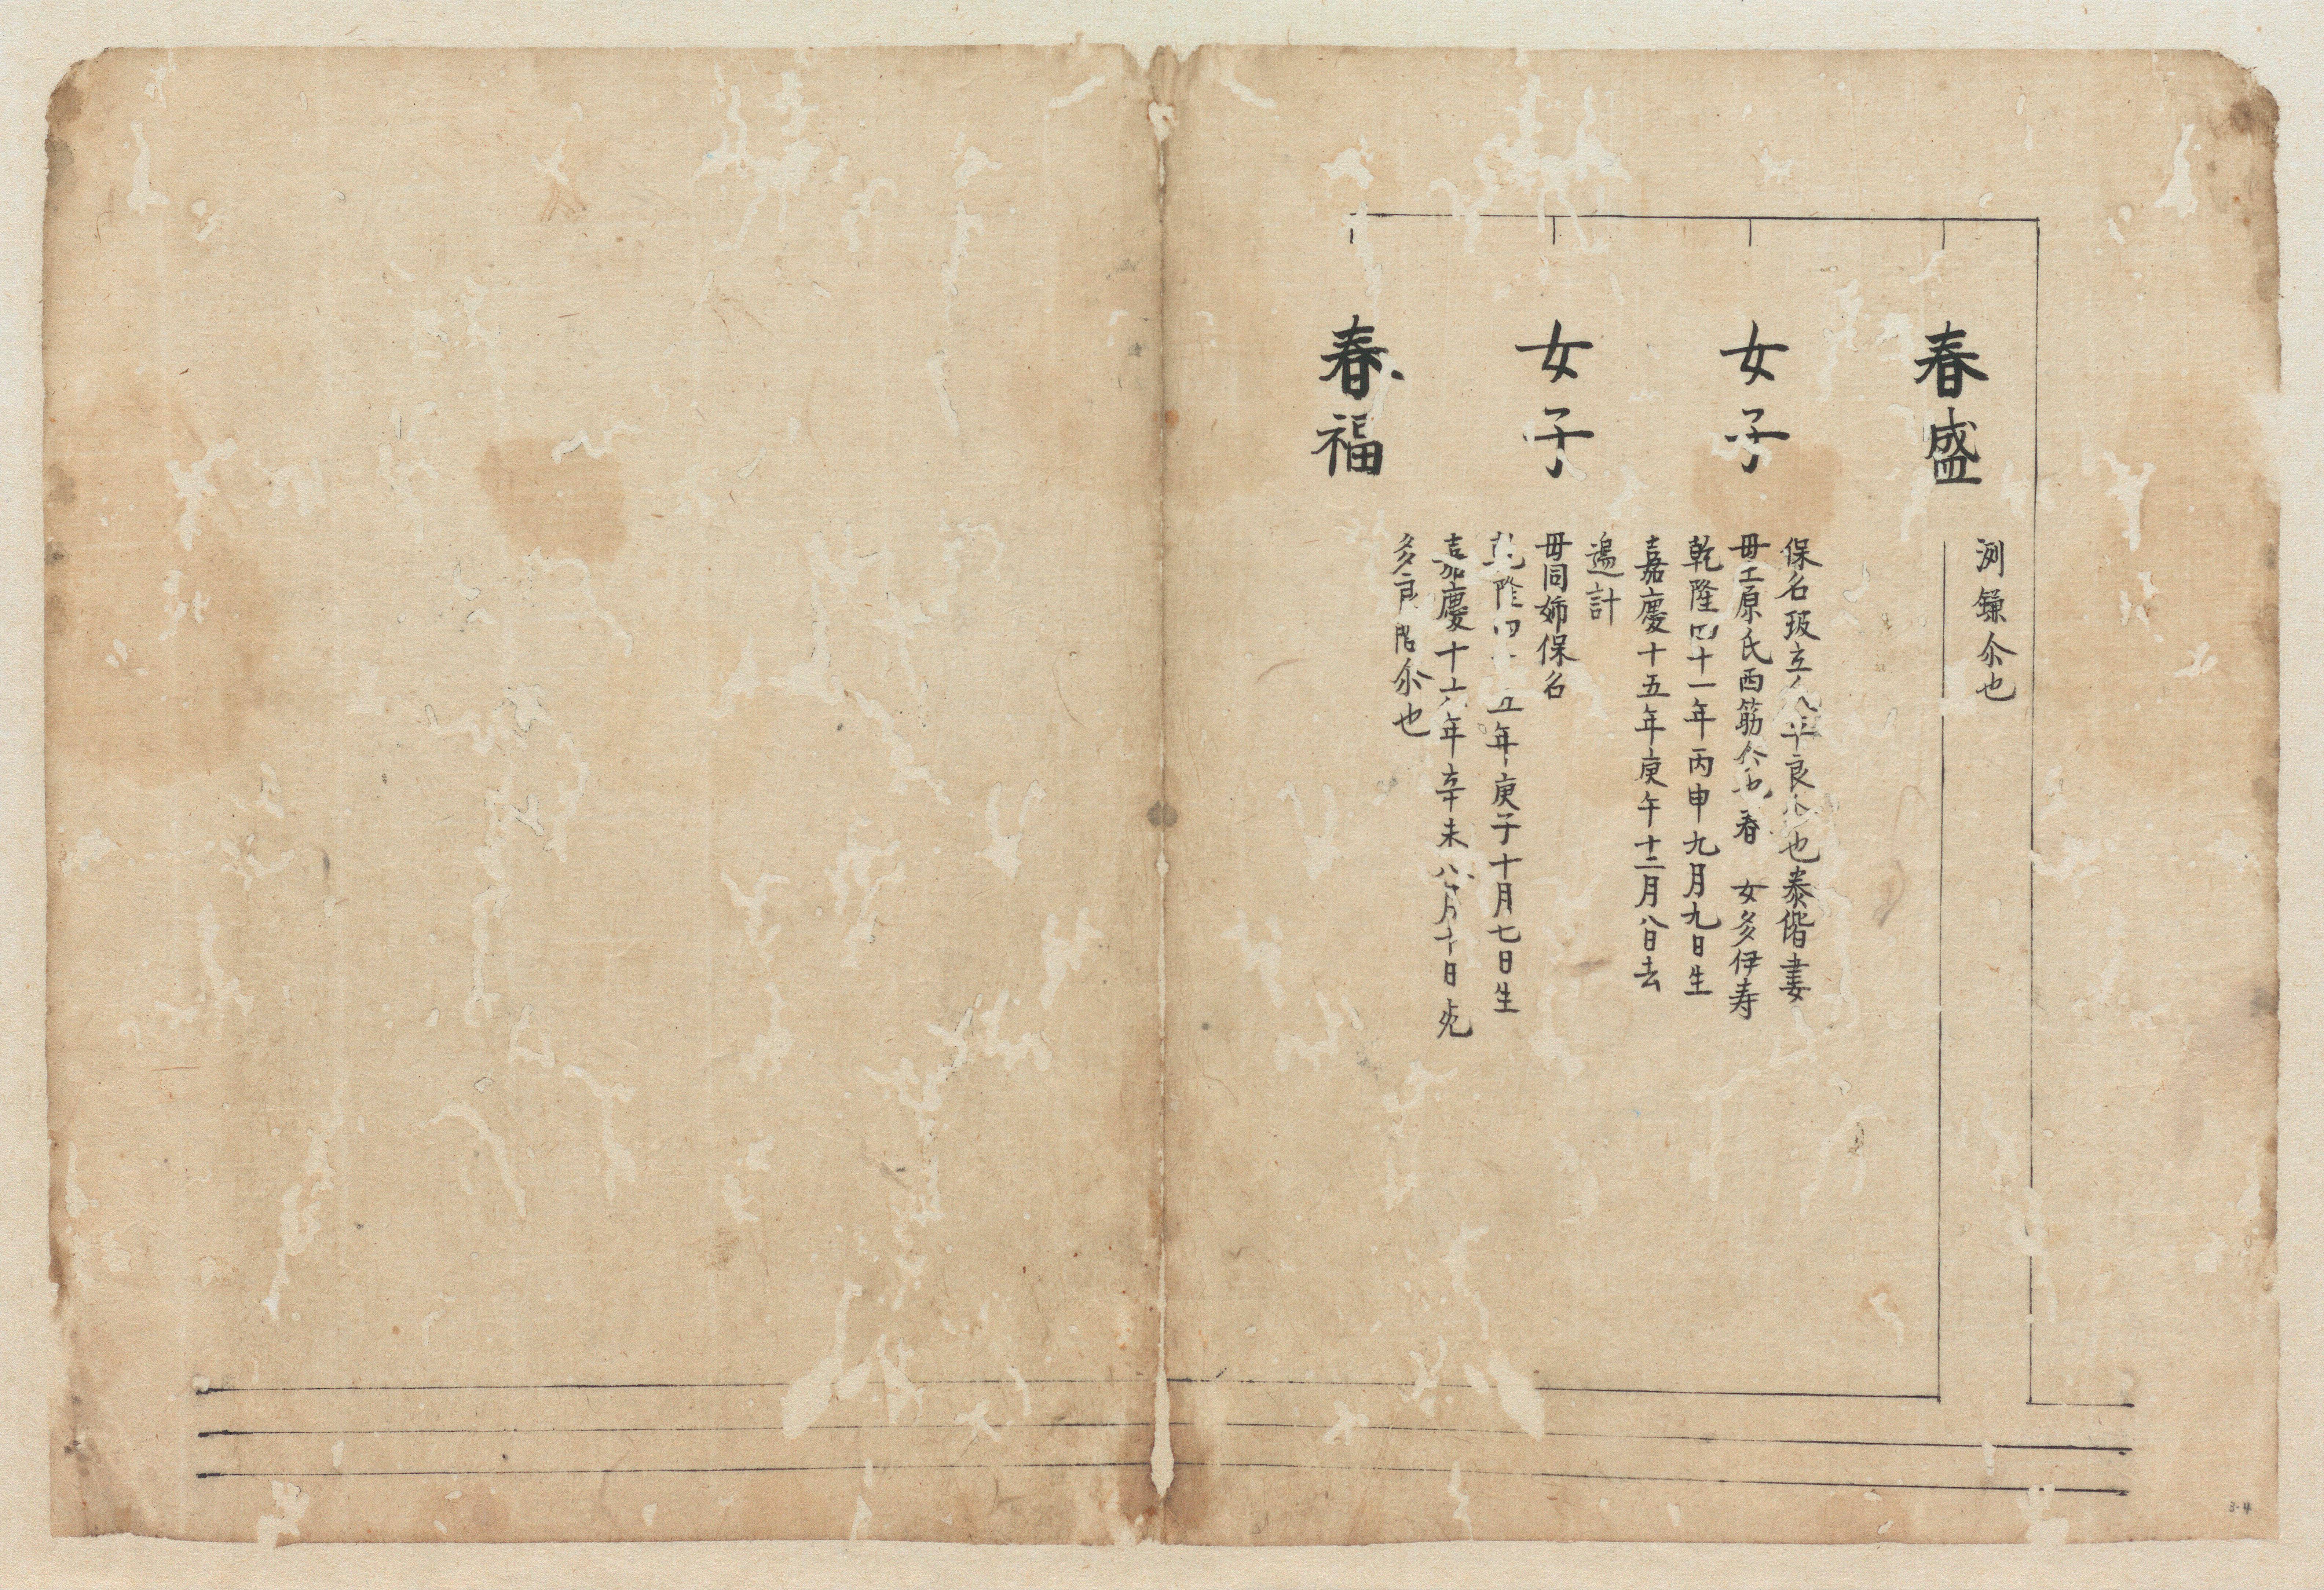 春盛
洌鎌尒也
女子
保名坂立 半良 也泰偕妻
毋土原氏西筋 春 女多伊寿
乾隆四十一年丙申九月九日生
嘉慶十五年庚午十二月八日去
過計
女子
毋同姉保名
乾隆四 五年庚子十月七日生
嘉慶十六年辛未八月十日死
多良 尒也
春福
3-4